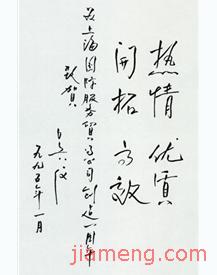 热情 优质
开拓 高效
为上海国际服务贸易公司创造一周年
致贺
一九九五年一月
jiameng.com